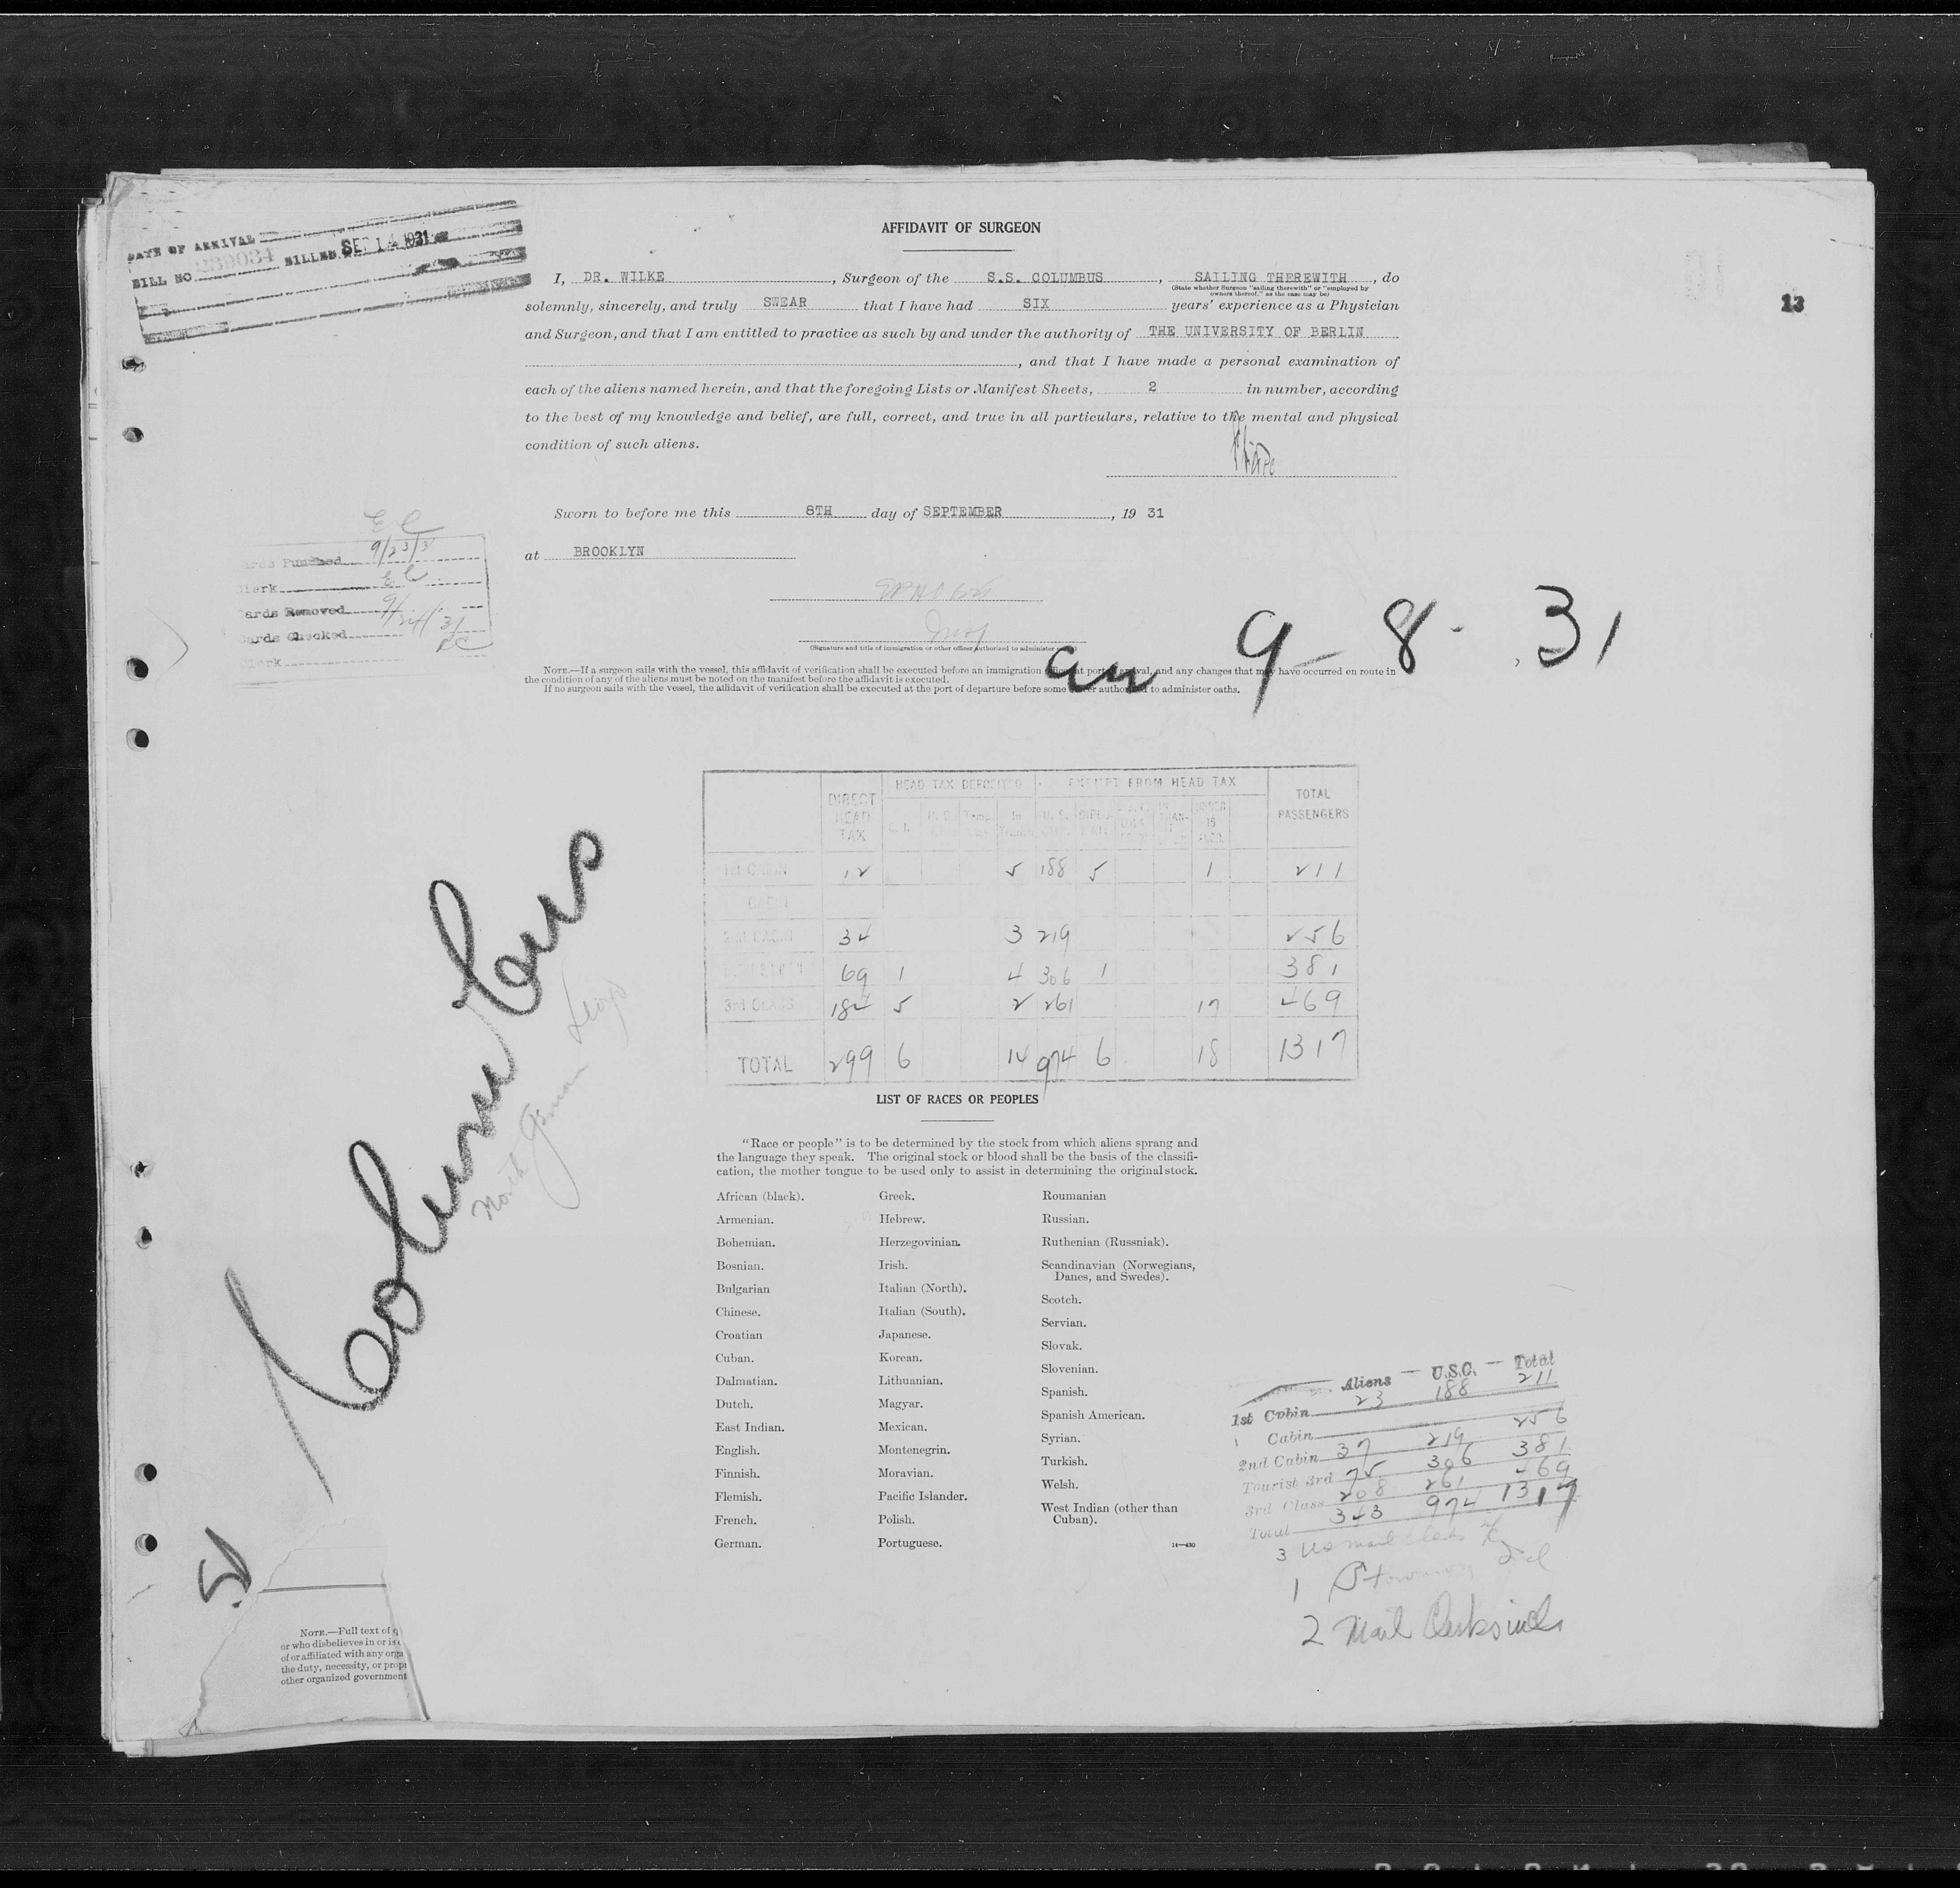 DATE OF ARRIVAL
BILL NO 239034 BILLED SEP 14 1931
13
AFFIDAVIT OF SURGEON
I, DR. WILKE, Surgeon of the S.S. COLUMBUS, SAILING THEREWITH, do
(State whether Surgeon "sailing therewith" or "employed by
owners thereof," as the case may be)
solemnly, sincerely, and truly SWEAR that I have had SIX years' experience as a Physician
and Surgeon, and that I am entitled to practice as such by and under the authority of THE UNIVERSITY OF BERLIN
, and that I have made a personal examination of
each of the aliens named herein, and that the foregoing Lists or Manifest Sheets, 2 in number, according
to the best of my knowledge and belief, are full, correct, and true in all particulars, relative to the mental and physical
condition of such aliens.
Sworn to before me this 8TH day of SEPTEMBER, 19 31
at BROOKLYN
(Signature and title of immigration or other officer authorized to administer
EC
ards Punched 9/23/31
lerk EC
ards Removed 9/24/31
ards Checked
lerk
NOTE.—If a surgeon sails with the vessel, this affidavit of verification shall be executed before an immigration officer at port of arrival, and any changes that may have occurred en route in
the condition of any of the aliens must be noted on the manifest before the affidavit is executed.
If no surgeon sails with the vessel, the affidavit of verification shall be executed at the port of departure before some officer authorized to administer oaths.
arr 9-8-31
HEAD TAX DEPOSITED EXEMPT FROM HEAD TAX
DIRECT HEAD TAX In Transit U.S. UNDER 16 TOTAL PASSENGERS
1st CABIN 12 5 188 5 1 211
CABIN
2nd CABIN 34 3 219 256
69 1 4 306 1 381
3rd CLASS 184 5 2 261 17 469
TOTAL 299 6 14 974 6 18 1317
Columbus
North German Lloyd
LIST OF RACES OR PEOPLES
"Race or people" is to be determined by the stock from which aliens sprang and
the language they speak. The original stock or blood shall be the basis of the classifi-
cation, the mother tongue to be used only to assist in determining the original stock.
African (black).
Armenian.
Bohemian.
Bosnian.
Bulgarian
Chinese.
Croatian
Cuban.
Dalmatian.
Dutch.
East Indian.
English.
Finnish.
Flemish.
French.
German.
Greek.
Hebrew.
Herzegovinian.
Irish.
Italian (North).
Italian (South).
Japanese.
Korean.
Lithuanian.
Magyar.
Mexican.
Montenegrin.
Moravian.
Pacific Islander.
Polish.
Portuguese.
Roumanian
Russian.
Ruthenian (Russniak).
Scandinavian (Norwegians,
Danes, and Swedes).
Scotch.
Servian.
Slovak.
Slovenian.
Spanish.
Spanish American.
Syrian.
Turkish.
Welsh.
West Indian (other than
Cuban).
14—430
Aliens — U.S.C. — Total
1st Cabin 23 188 211
Cabin
2nd Cabin 37 219 256
Tourist 3rd 75 306 381
3rd Class 208 261 469
Total 343 974 1317
3 US mail clerks
1 Stowaway
2 Mail Clerks incl
NOTE.—Full text of q
or who disbelieves in or is
of or affiliated with any orga
the duty, necessity, or propr
other organized government